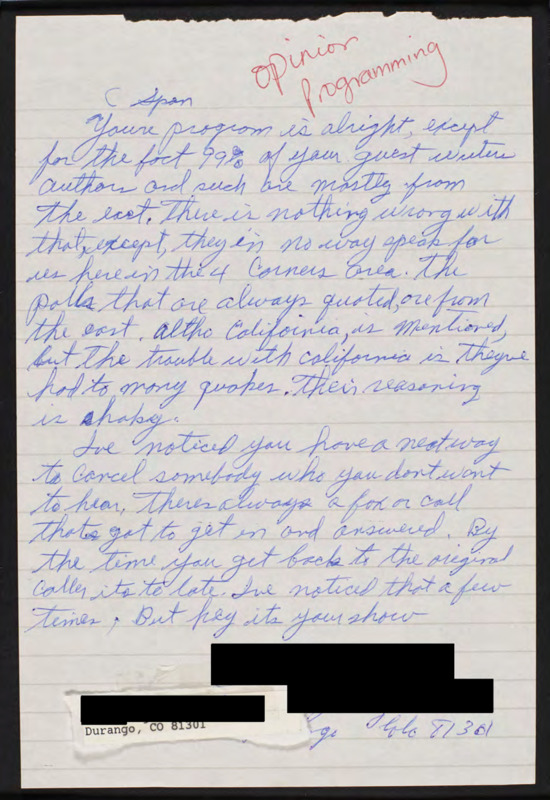 Opinion
Programming
C Span
Youre program is alright, except
for the fact 99% of your guest writers
authors and such are mostly from
the east. There is nothing wrong with
that, except, they in no way speak for
us here in the 4 Corners area. The
polls that are always quoted, are from
the east. Altho California, is mentioned,
but the trouble with california is they've
had to many quakes. Their reasoning
is shaky.
Ive noticed you have a neat way
to cancel somebody who you dont want
to hear, theres always a fax or call
thats got to get in and answered. By
the time you get back to the original
caller its to late. Ive noticed that a few
times, But hey its your show
Durango, CO 81301
go Colo 81301